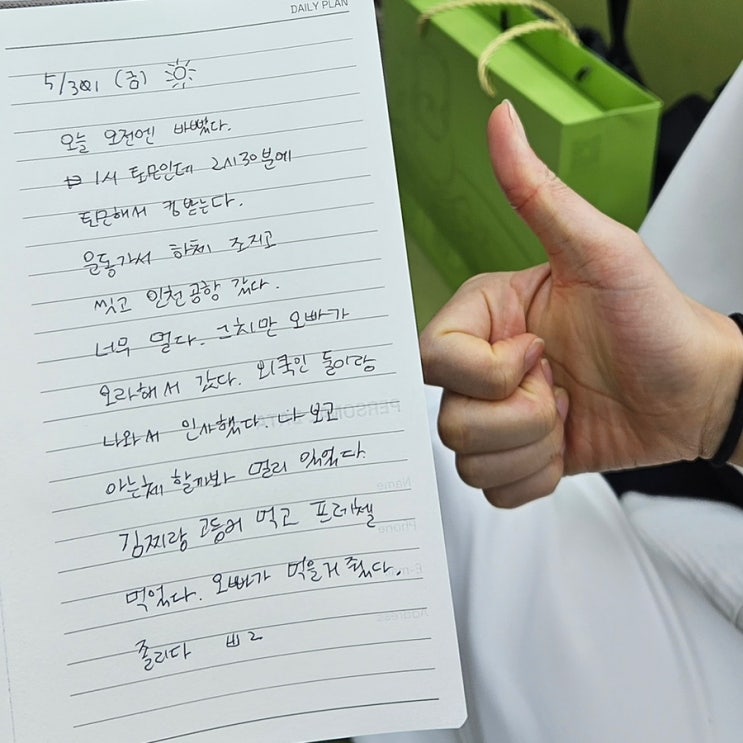 DAILY PLAN
5/30일 (금)
오늘 오전엔 바빴다.
1시 퇴문인데 2시30분에
퇴문해서 킹받는다.
운동가서 하체 조지고
씻고 인천공항 갔다.
너무 멀다. 그치만 오빠가
오라해서 갔다. 외국인 둘이랑
나와서 인사했다. 나 보고
아는체 할까봐 멀리 있었다.
김찌랑 고등어 먹고 프레첼
먹었다. 오빠가 먹을거 줬다.
졸리다 ㅂ2
PERSONAL DATA
Name
Phone
E-mail
Address